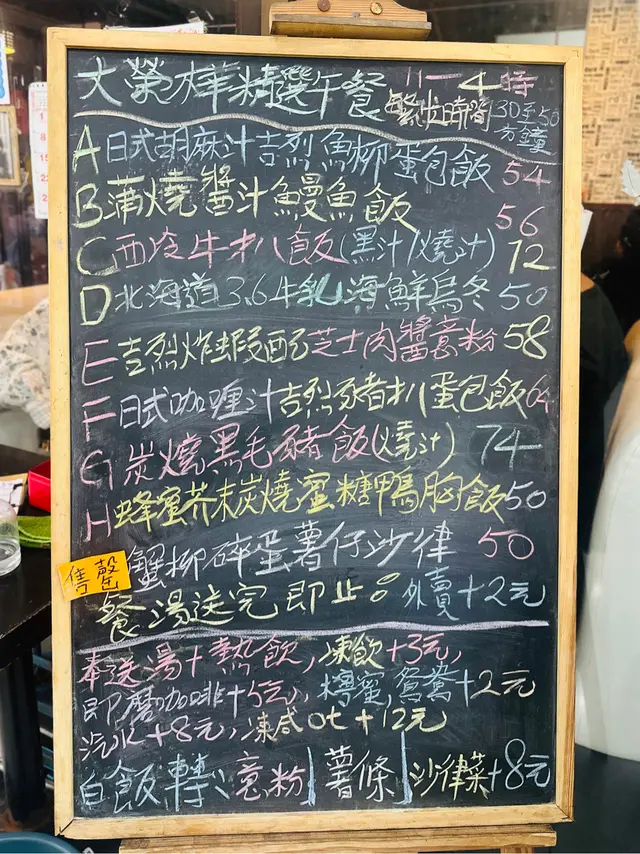 大榮華精選午餐 11—4時
繁忙時間30至50分鐘
A日式胡麻汁吉烈魚柳蛋包飯 54
B蒲燒醬汁鰻魚飯 56
C西冷牛扒飯(黑汁/燒汁) 72
D北海道3.6牛乳海鮮烏冬 50
E吉烈炸蝦配芝士肉醬意粉 58
F日式咖喱汁吉烈豬扒蛋包飯 64
G炭燒黑毛豬飯(燒汁) 74
H蜂蜜芥末炭燒蜜糖鴨胸飯 50
售罄 蟹柳碎蛋薯仔沙律 50
餐湯送完即止。外賣+2元
奉送湯+熱飲,凍飲+3元,
即磨咖啡+5元,檸蜜,鴛鴦+2元
汽水+8元,凍咸0t+12元
白飯轉、意粉|薯條|沙律菜+8元